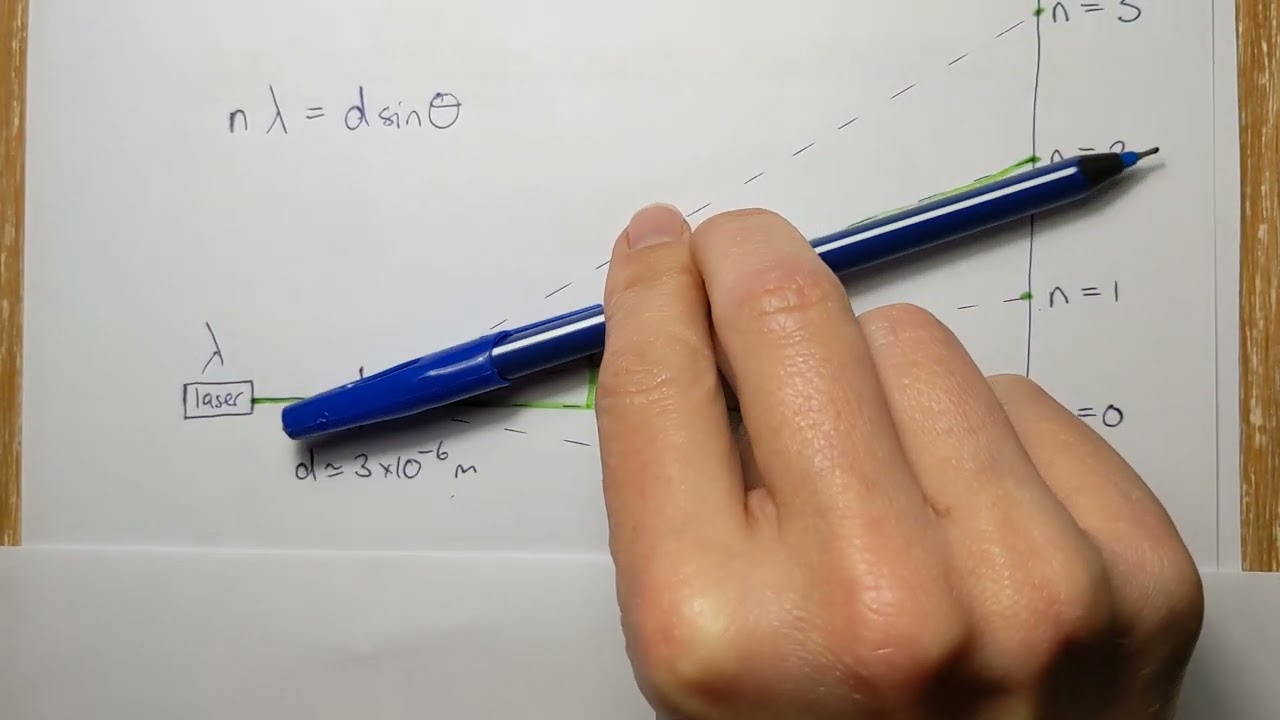 n = 3
nλ = d sinθ
n =
n = 1
λ
laser
= 0
d ≃ 3×10⁻⁶ m